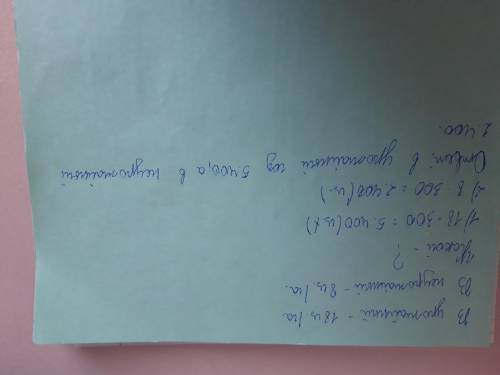 В урожайный - 18 ц/га.
В неурожайный - 8 ц/га.
Урожай - ?
1) 18 · 300 = 5.400 (ц.)
2) 8 · 300 = 2.400 (ц.)
Ответ: в урожайный год 5.400, а в неурожайный
2.400.